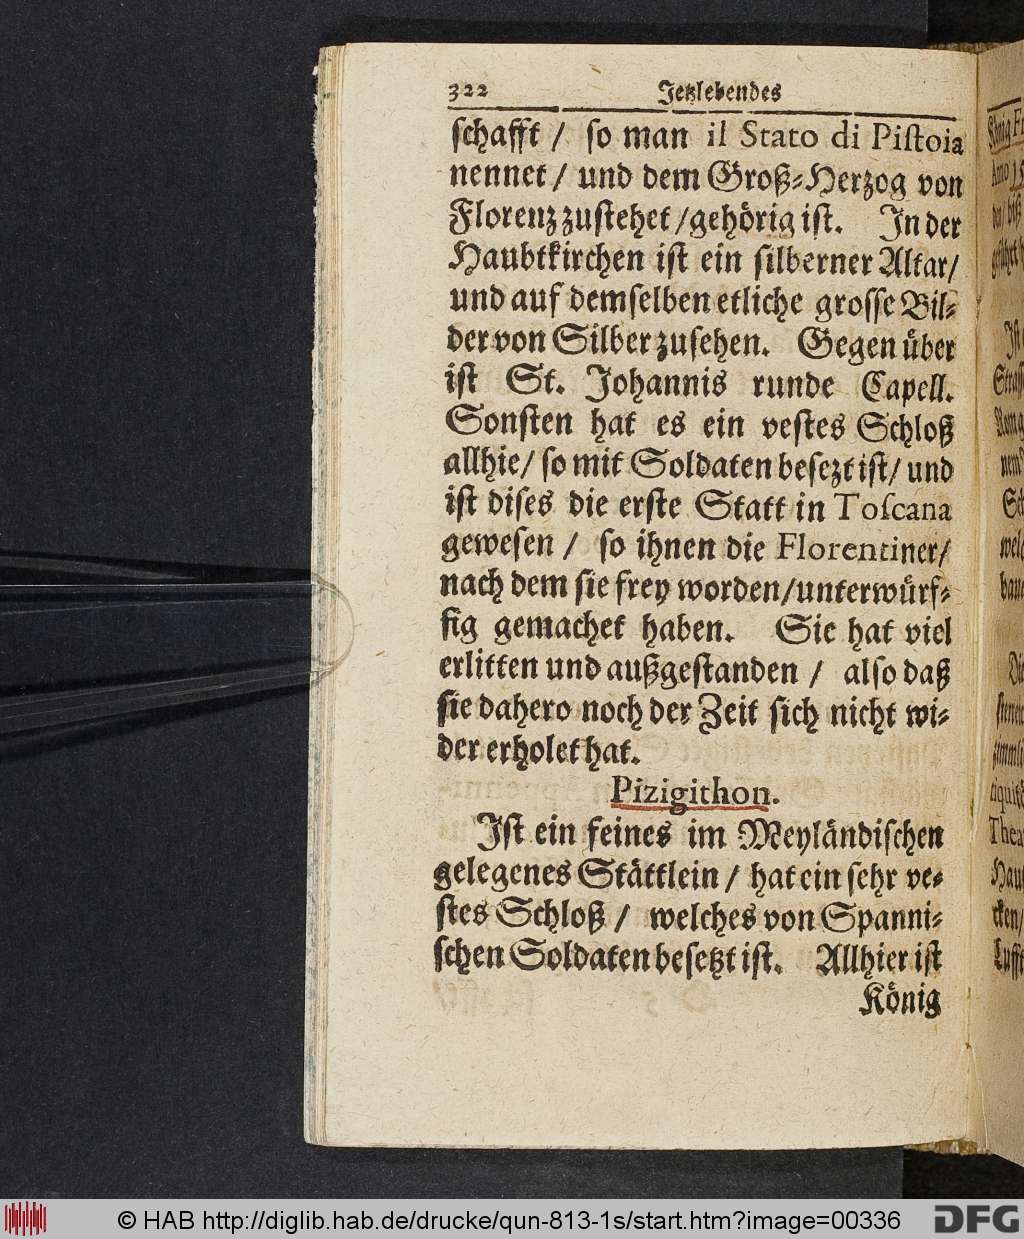 322 Jetzlebendes
schafft / so man il Stato di Pistoia
nennet / und dem Groß-Herzog von
Florenz zustehet / gehörig ist. In der
Haubtkirchen ist ein silberner Altar /
und auf demselben etliche grosse Bil-
der von Silber zusehen. Gegen über
ist St. Johannis runde Capell.
Sonsten hat es ein vestes Schloß
allhie / so mit Soldaten besezt ist / und
ist dises die erste Statt in Toscana
gewesen / so ihnen die Florentiner /
nach dem sie frey worden / unterwürf-
fig gemachet haben. Sie hat viel
erlitten und außgestanden / also daß
sie dahero noch der Zeit sich nicht wi-
der erholet hat.
Pizigithon.
Ist ein feines im Meyländischen
gelegenes Stättlein / hat ein sehr ve-
stes Schloß / welches von Spanni-
schen Soldaten besetzt ist. Allhier ist
König
© HAB http://diglib.hab.de/drucke/qun-813-1s/start.htm?image=00336
DFG